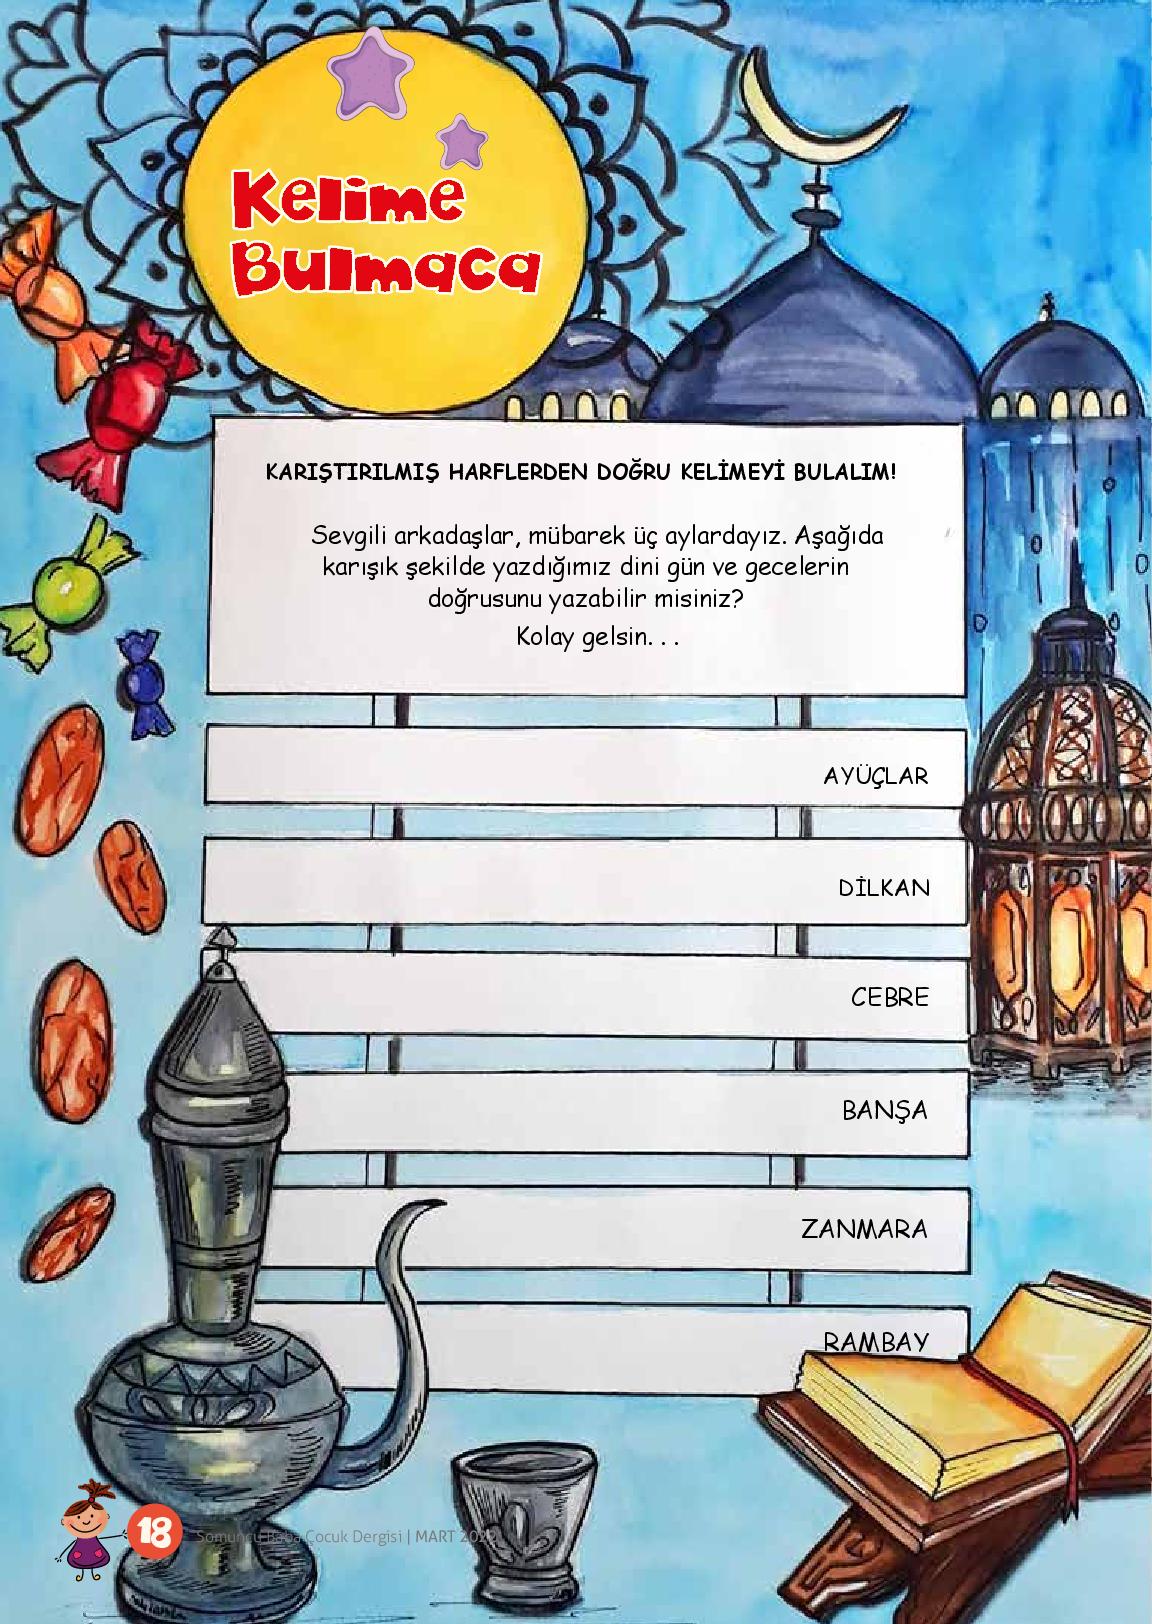 Kelime
Bulmaca
KARIŞTIRILMIŞ HARFLERDEN DOĞRU KELİMEYİ BULALIM!
Sevgili arkadaşlar, mübarek üç aylardayız. Aşağıda
karışık şekilde yazdığımız dini gün ve gecelerin
doğrusunu yazabilir misiniz?
Kolay gelsin. . .
AYÜÇLAR
DİLKAN
CEBRE
BANŞA
ZANMARA
RAMBAY
18
Somuncu Baba Çocuk Dergisi | MART